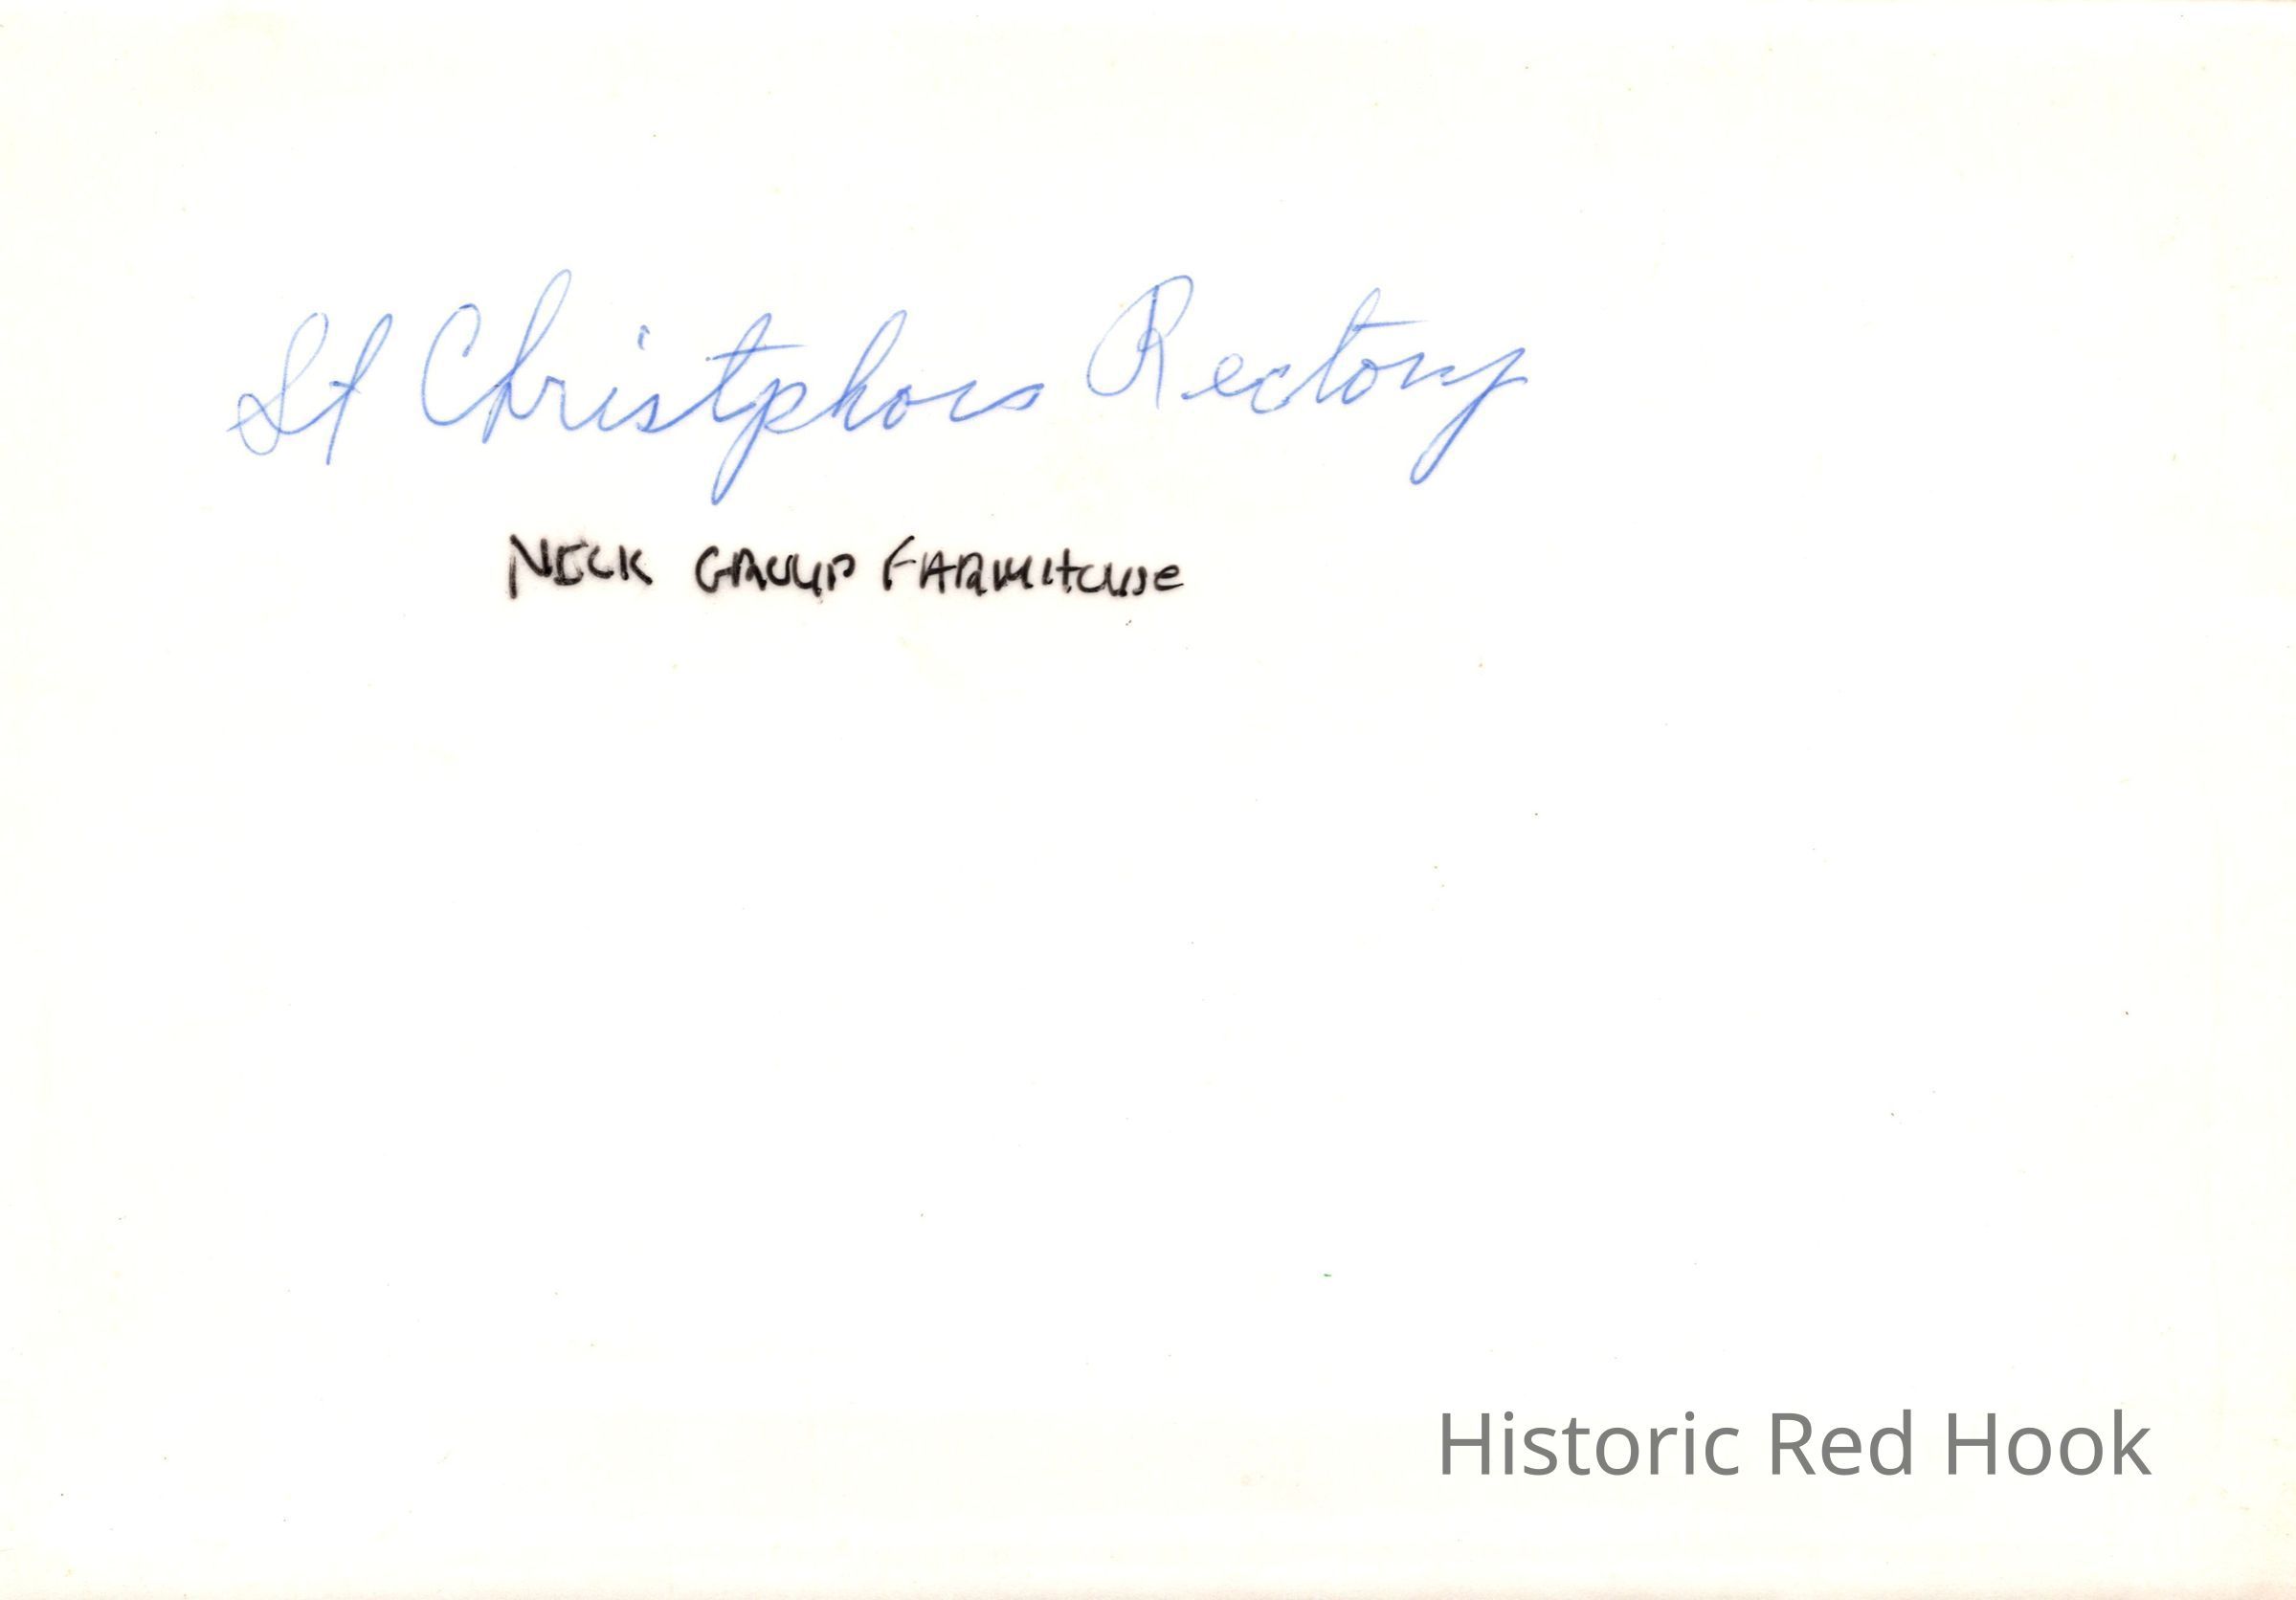 St Christphors Rectory
NICK GROUP FARMHOUSE
Historic Red Hook